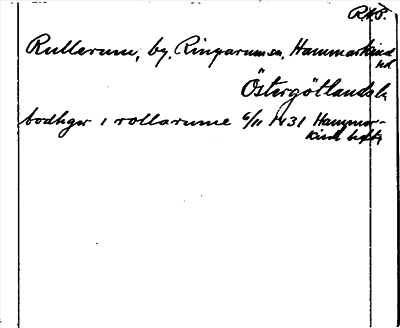 RAP.
Rullerum, by, Ringarums sn, Hammarkind
hd
Östergötlands lä
bodhger i rollarume 6/11 1431 Hammar-
kind hdsrz